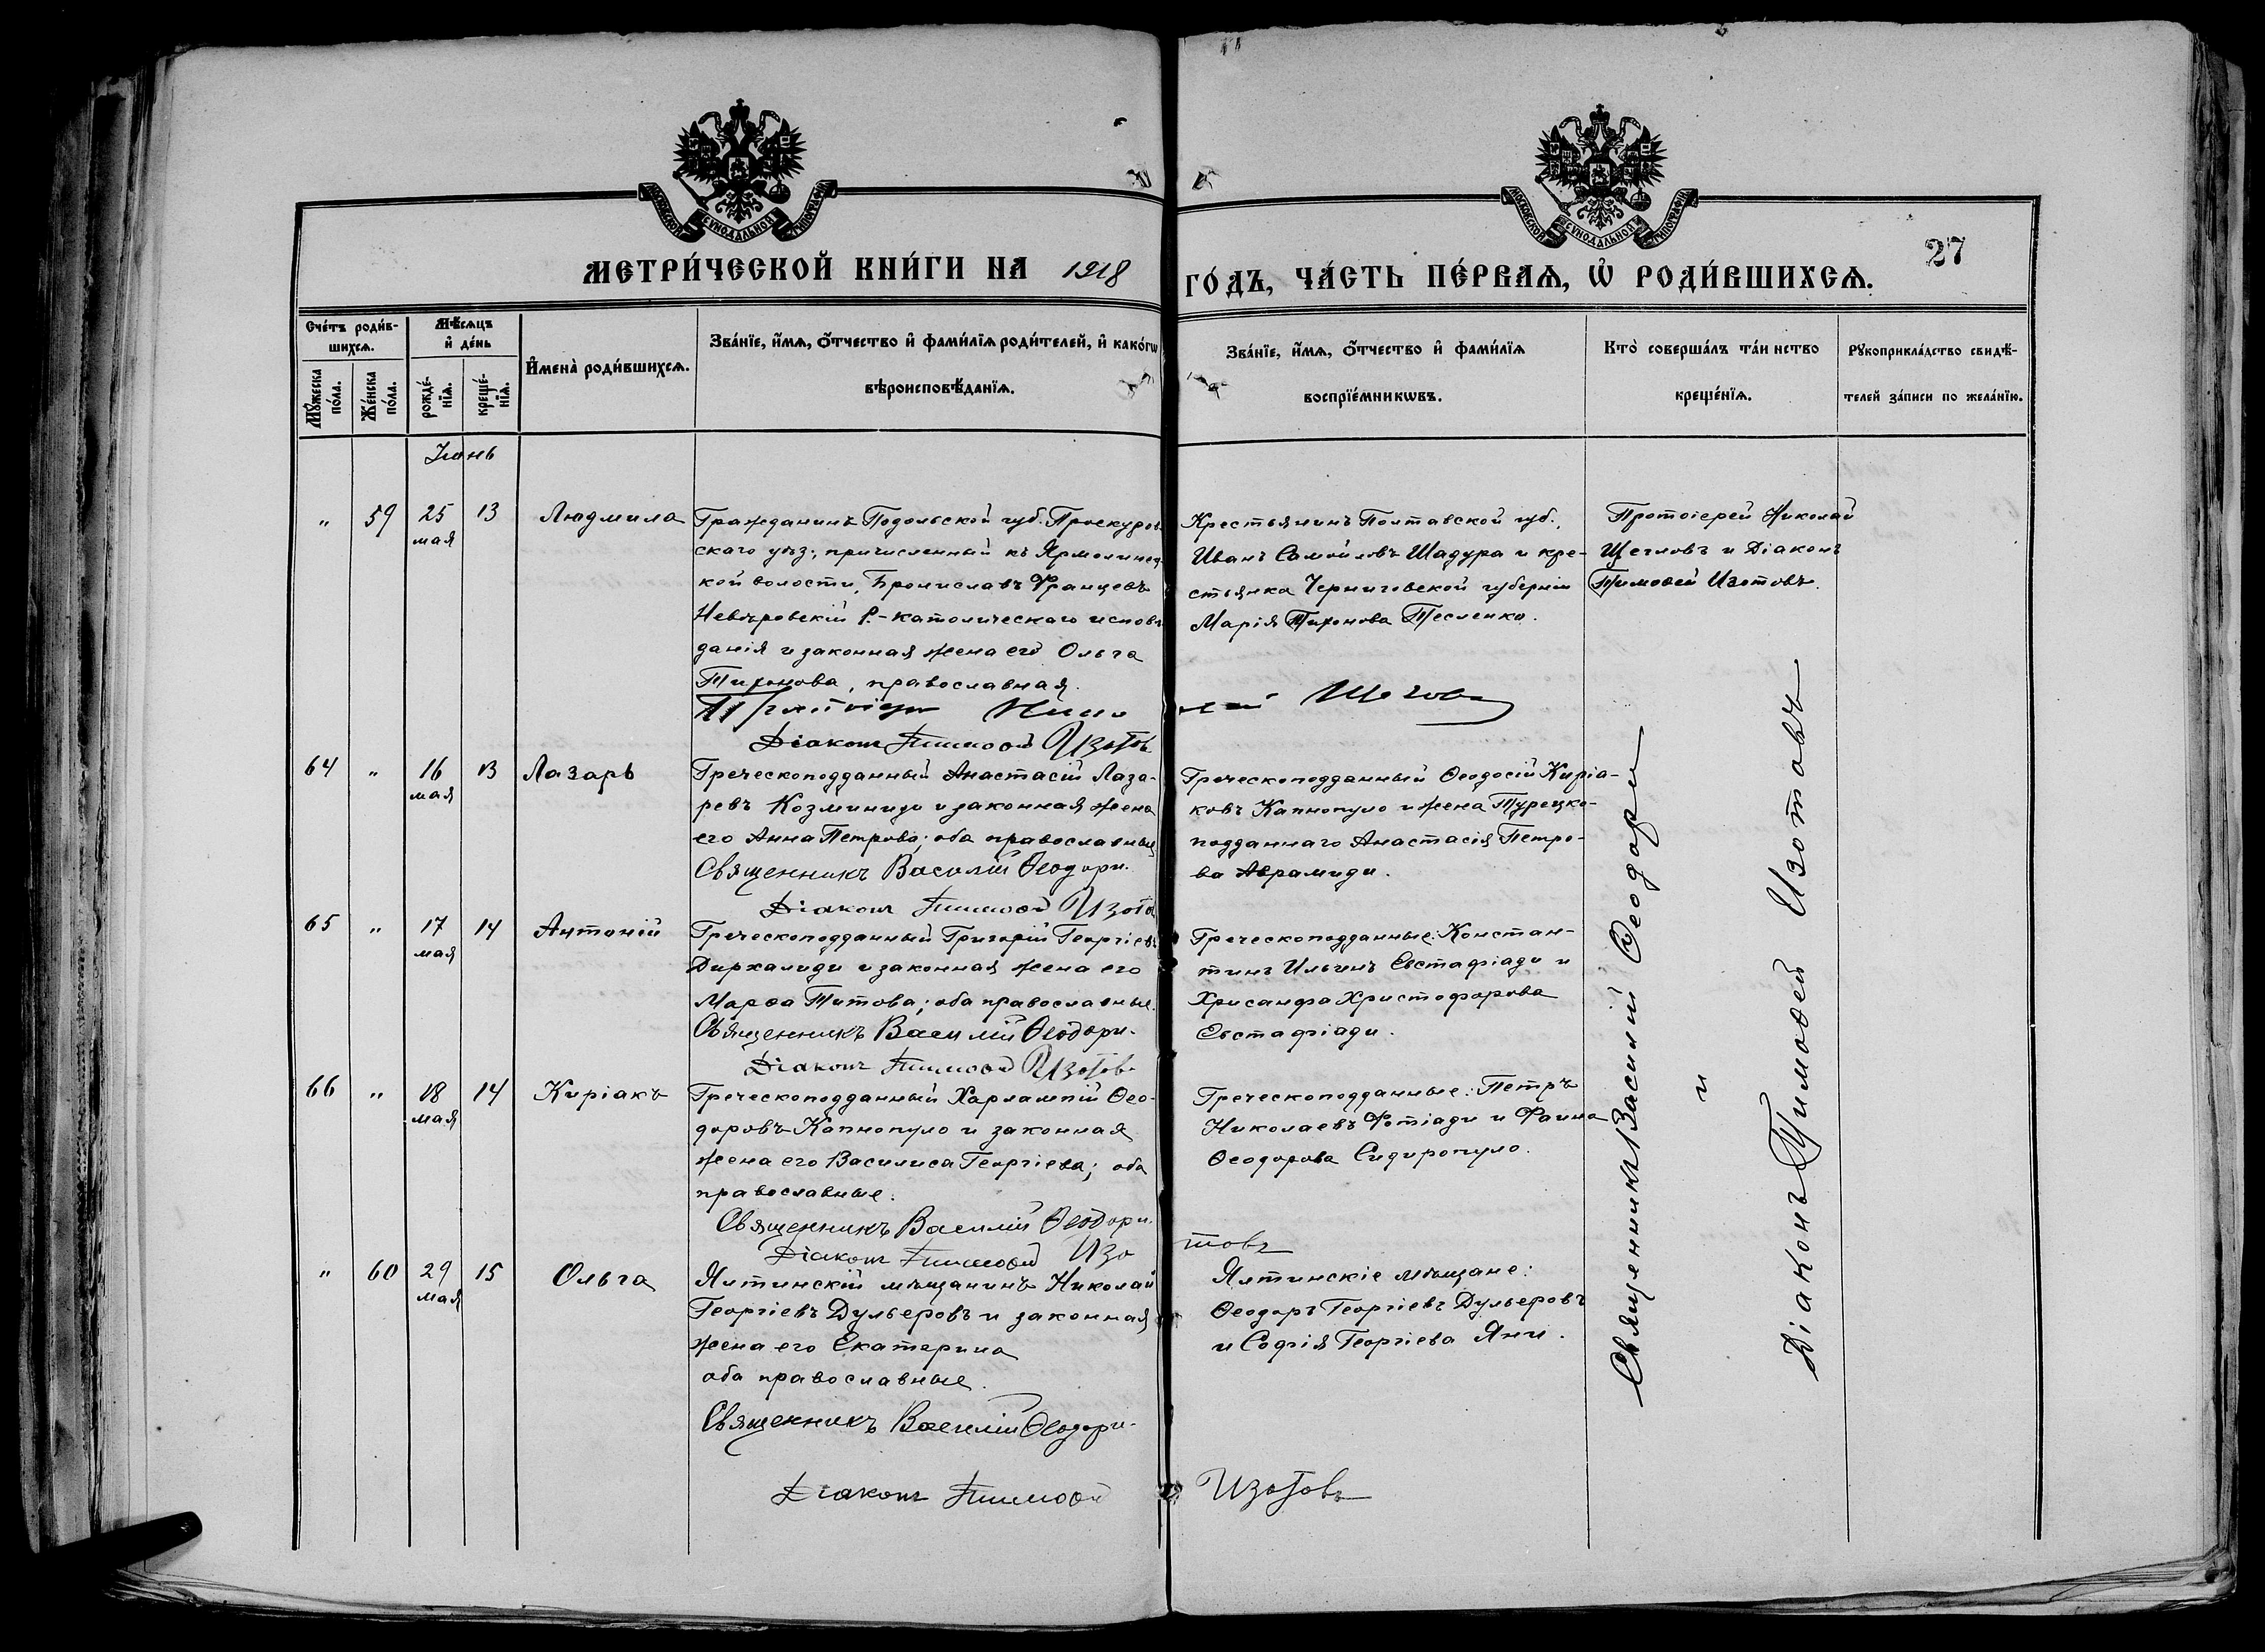 МОСКОВСКОЙ СѴНОДАЛЬНОЙ ТИПОГРАФІИ
МОСКОВСКОЙ СѴНОДАЛЬНОЙ ТИПОГРАФІИ
27
МЕТРИ́ЧЕСКОЙ КНИ́ГИ НА 1918
ГО́ДЪ, ЧА́СТЬ ПЕ́РВАѦ, Ѡ҆ РОДИ́ВШИХСѦ.
Сче́тъ роди́в-
шихсѧ.
Мꙋ́жеска
по́ла.
Же́нска
по́ла.
Мѣ́сѧцъ
и҆ де́нь
рожде́-
нїѧ.
креще́-
нїѧ.
И҆мена̀ роди́вшихсѧ.
Зва́нїе, и҆́мѧ, ѻ҆́тчество и҆ фами́лїѧ роди́телей, и҆ како́гѡ
вѣроисповѣ́данїѧ.
Зва́нїе, и҆́мѧ, ѻ҆́тчество и҆ фами́лїѧ
воспрїе́мникѡвъ.
Кто̀ соверша́лъ та́инство
креще́нїѧ.
Рꙋкоприкла́дство свидѣ́-
телей за́писи по жела́нїю.
Іюнь
" 59 25 мая 13 Людмила
Гражданинъ Подольской губ. Проскуров
скаго уѣз., причисленный къ Ярмолинец
кой волости, Брониславъ Францевъ
Невѣровскій Р.-католическаго исповѣ
данія и законная жена его Ольга
Тихонова, православная.
Крестьянинъ Полтавской губ.,
Иванъ Самойловъ Шадура и кре-
стьянка Черниговской губерніи
Марія Тихонова Тесленко.
Протоіерей Николай
Щегловъ и Діаконъ
Тимоѳей Изотовъ.
Діаконъ Тимоѳей Изотовъ
64 " 16 мая 13 Лазарь
Греческоподданный Анастасій Лаза-
ревъ Козминиди и законная жена
его Анна Петрова; оба православные
Священникъ Василій Ѳеодори.
Діаконъ Тимоѳей Изотов
Греческоподданный Ѳеодосій Киріа-
ковъ Капнопуло и жена Турецко-
подданнаго Анастасія Петро-
ва Аврамиди.
65 " 17 мая 14 Антоній
Греческоподданный Григорій Георгіевъ
Дирхалиди и законная жена его
Марѳа Титова; оба православные.
Священникъ Василій Ѳеодори.
Діаконъ Тимоѳей Изотов
Греческоподданные: Констан-
тинъ Ильинъ Евстафіади и
Хрисанфа Христофорова
Евстафіади.
66 " 18 мая 14 Киріакъ
Греческоподданный Харлампій Ѳео-
доровъ Капнопуло и законная
жена его Василиса Георгіева; оба
православные.
Священникъ Василій Ѳеодори.
Діаконъ Тимоѳей Изотовъ
Греческоподданные: Петръ
Николаевъ Фотіади и Фаина
Ѳеодорова Сидиропуло.
" 60 29 мая 15 Ольга
Ялтинскій мѣщанинъ Николай
Георгіевъ Дульеровъ и законная
жена его Екатерина
оба православные.
Священникъ Василій Ѳеодори.
Діаконъ Тимоѳей Изотовъ
Ялтинскіе мѣщане:
Ѳеодоръ Георгіевъ Дульеровъ
и Софія Георгіева Яни.
Священникъ Василій Ѳеодори
и
Діаконъ Тимоѳей Изотовъ